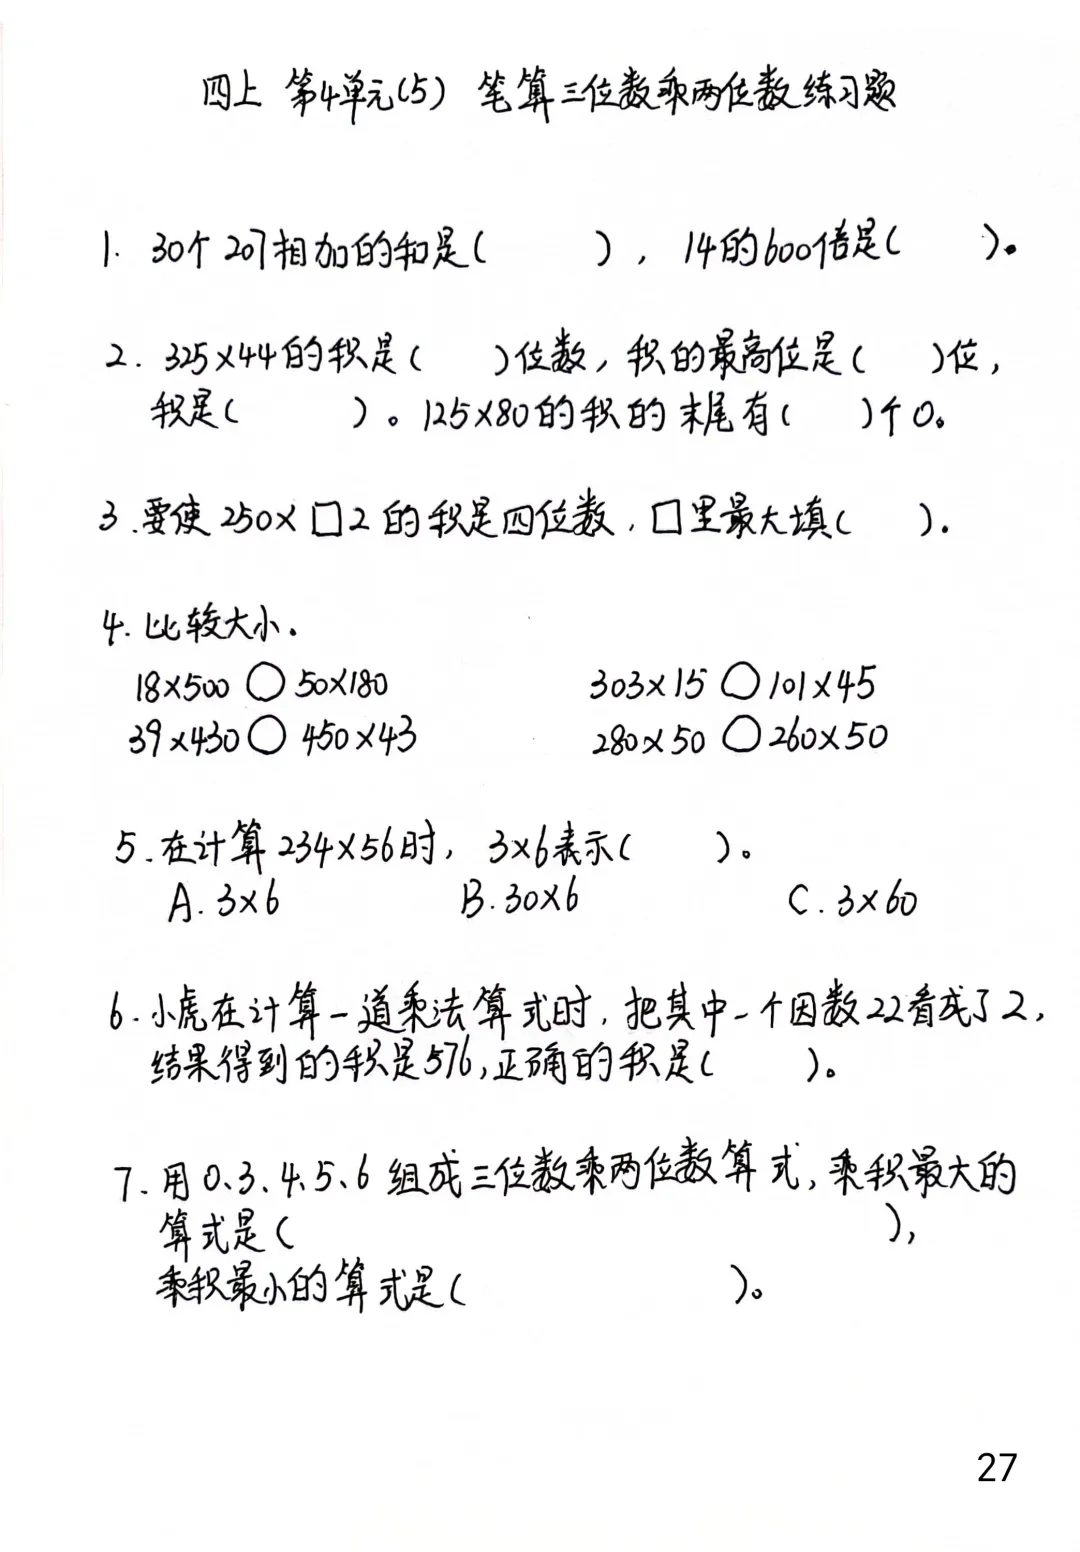 四上 第4单元(5) 笔算三位数乘两位数练习题
1. 30个207相加的和是( ), 14的600倍是( )。
2. 325×44的积是( )位数, 积的最高位是( )位,
积是( )。125×80的积的末尾有( )个0。
3.要使250×□2的积是四位数,□里最大填( ).
4.比较大小.
18×500○50×180 303×15○101×45
39×430○450×43 280×50○260×50
5.在计算234×56时, 3×6表示( )。
A.3×6 B.30×6 C.3×60
6.小虎在计算一道乘法算式时,把其中一个因数22看成了2,
结果得到的积是576,正确的积是( )。
7.用0、3、4、5、6组成三位数乘两位数算式,乘积最大的
算式是( ),
乘积最小的算式是( )。
27